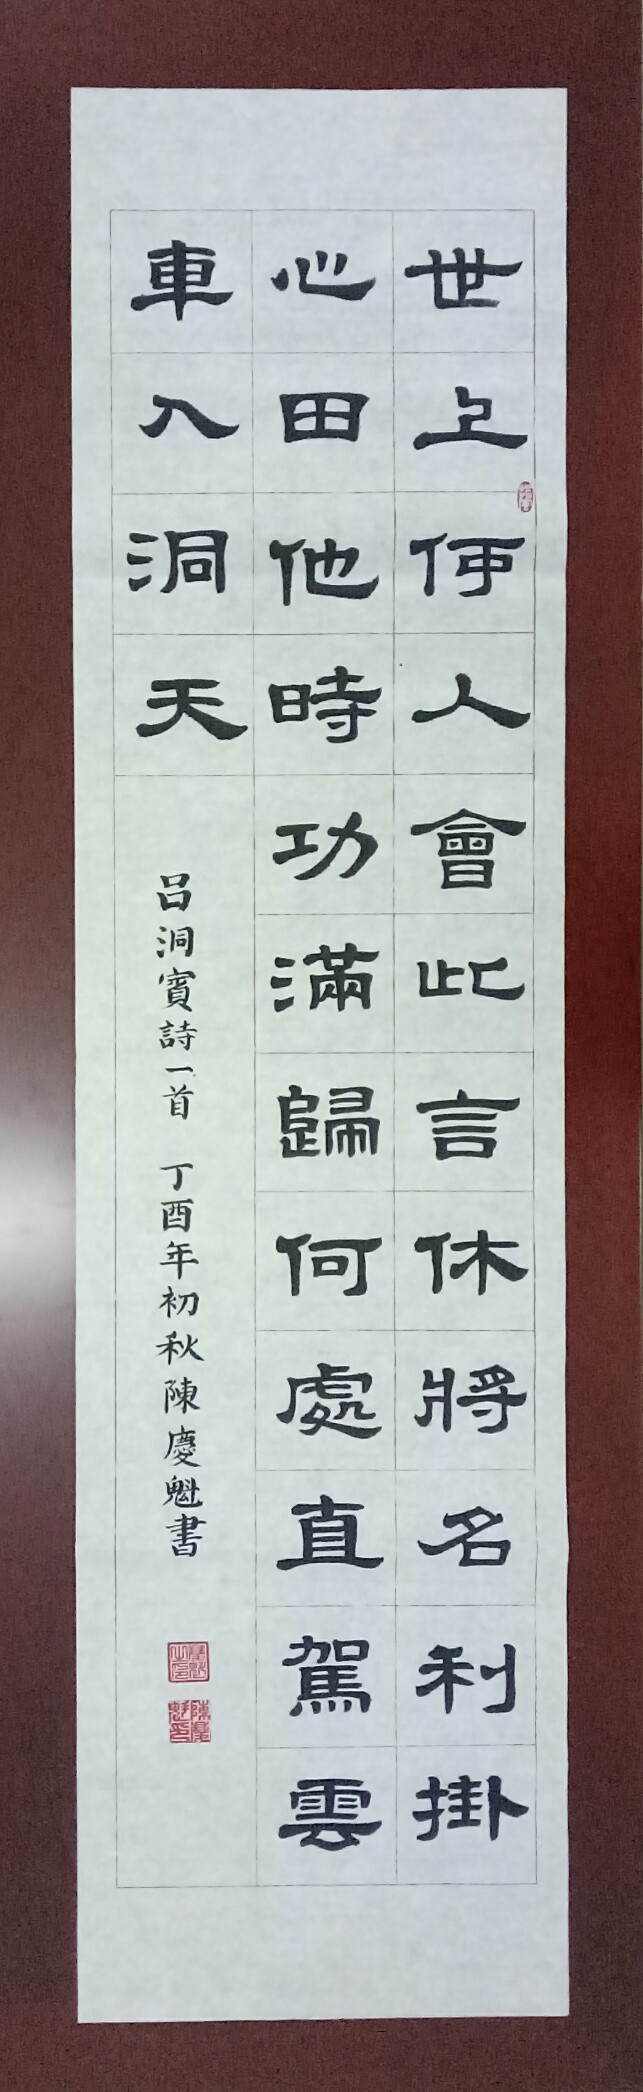 世上何人會此言休將名利掛
心田他時功滿歸何處直駕雲
車入洞天
吕洞賓詩一首 丁酉年初秋陳慶魁書
陳慶魁印